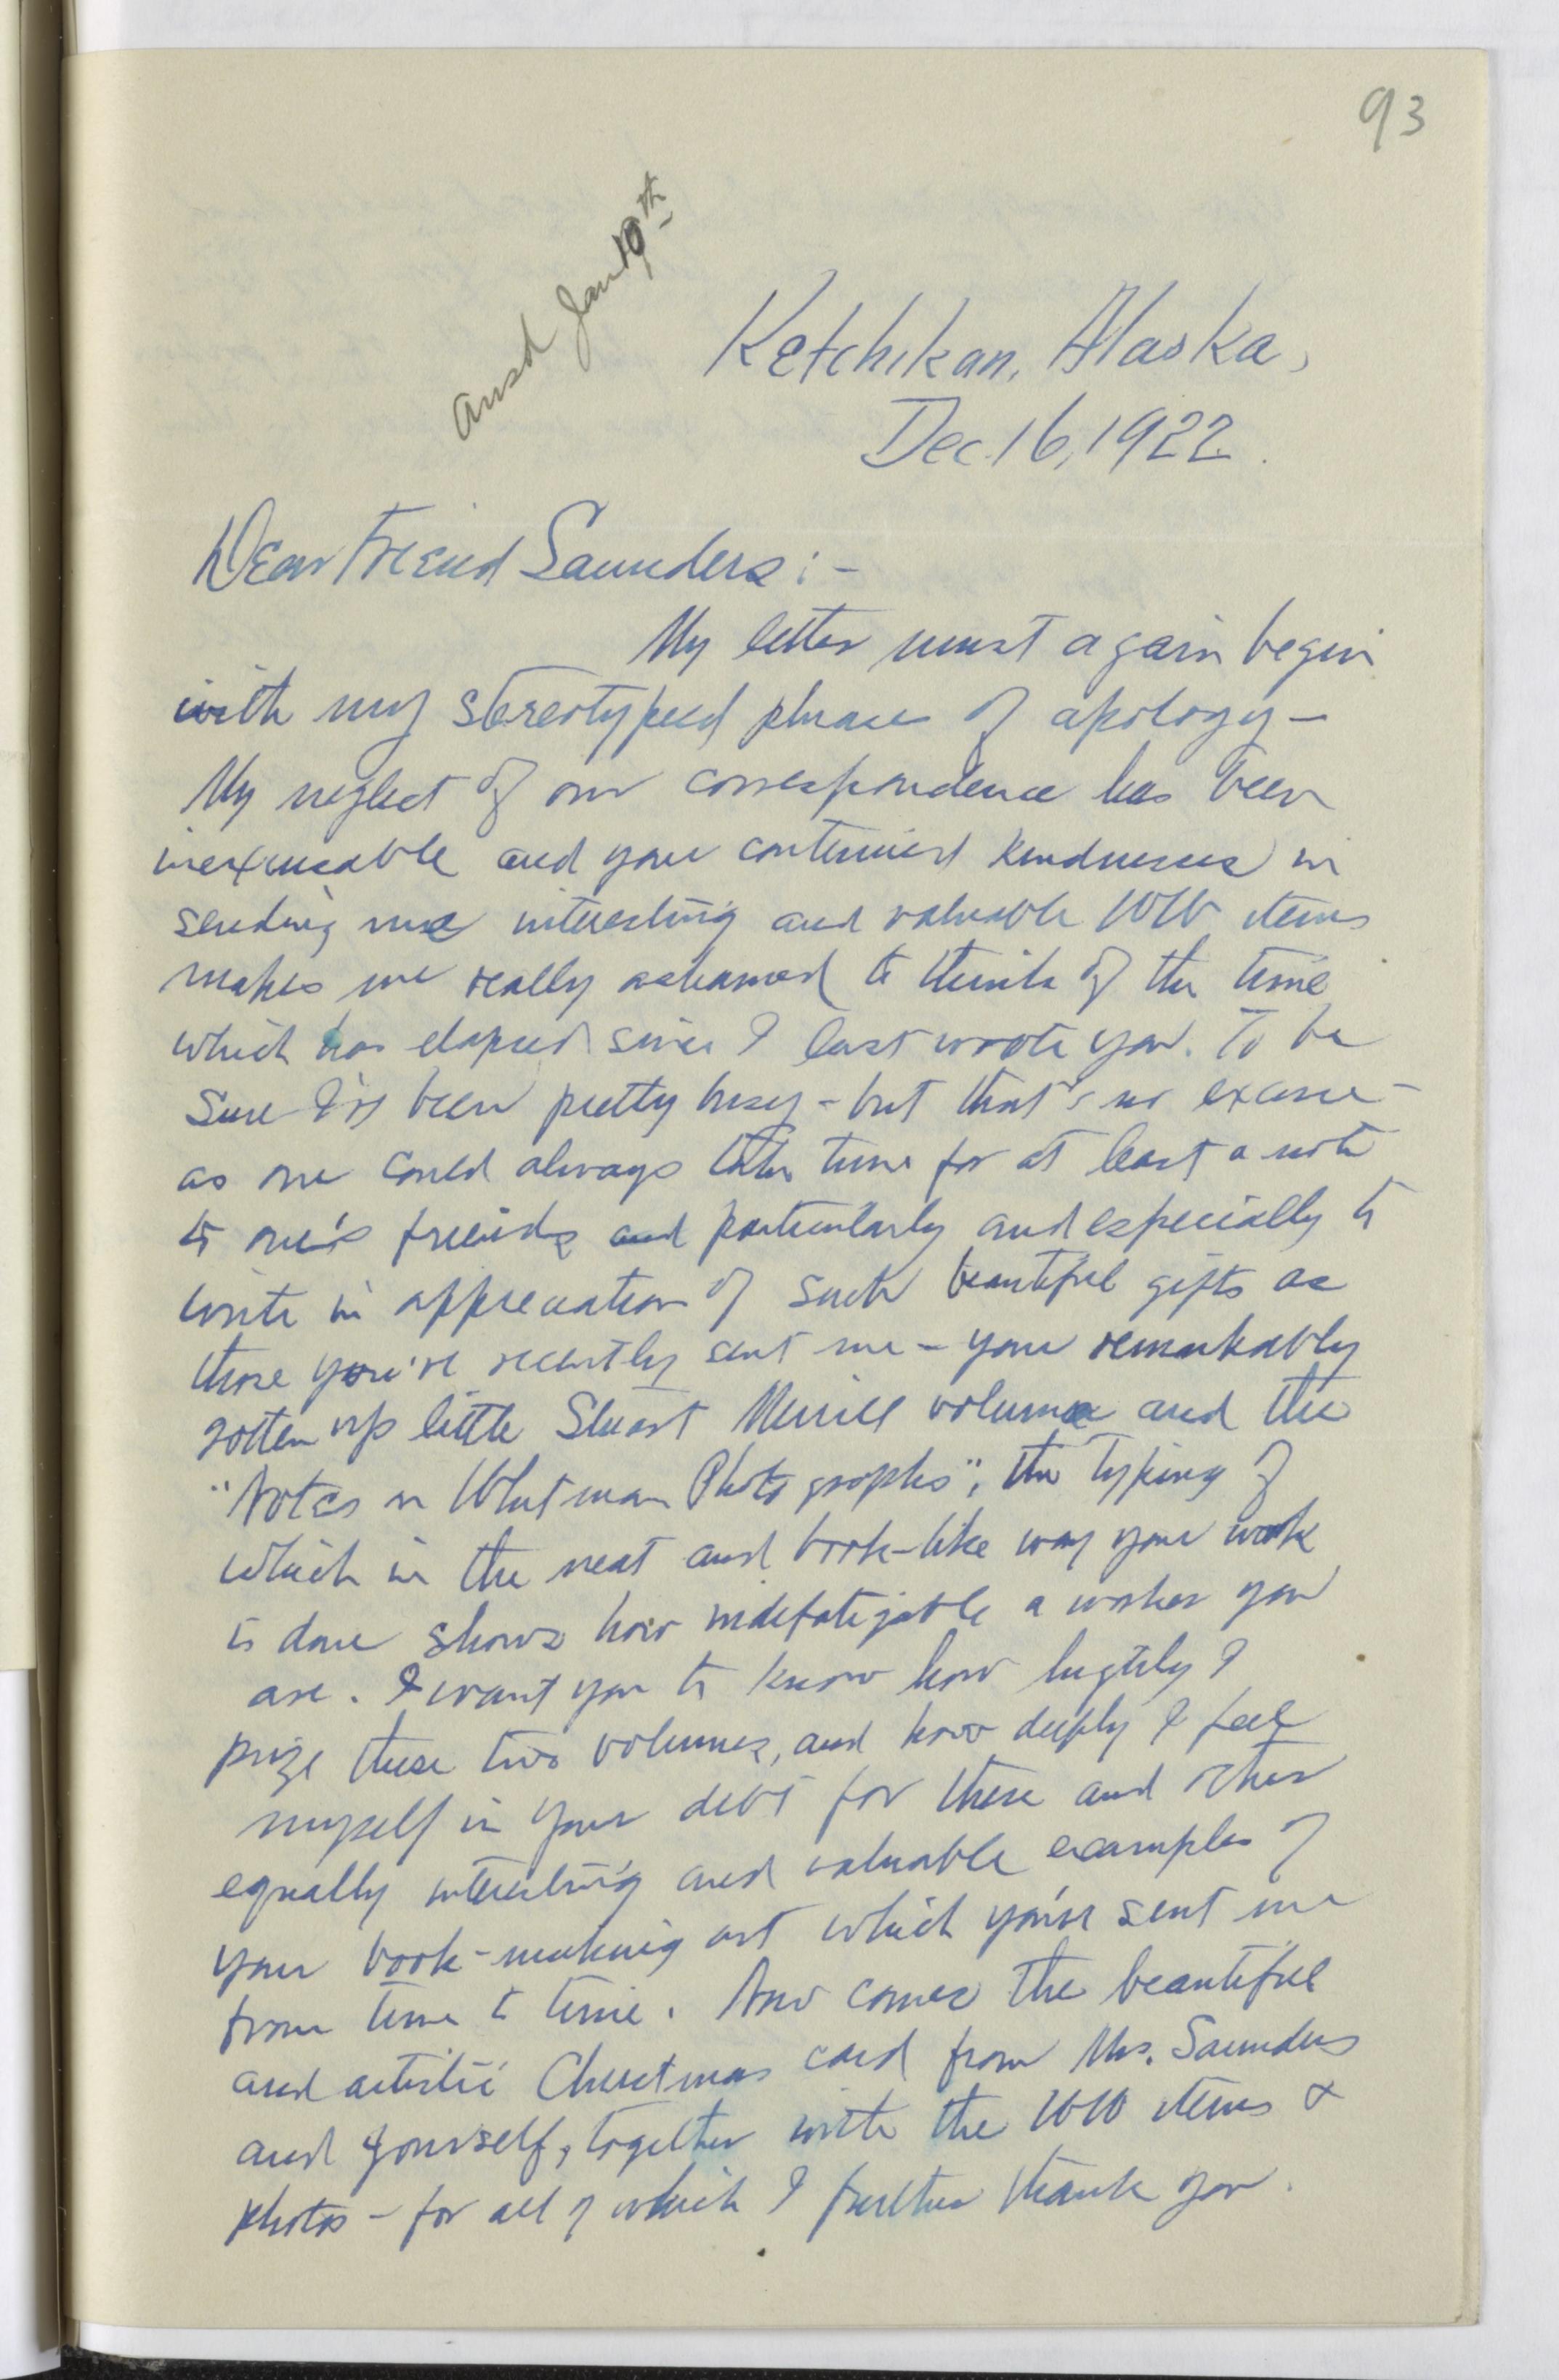 93
Ansd Jan 19th
Ketchikan, Alaska,
Dec. 16, 1922.
Dear Friend Saunders:-
My letter must again begin
with my stereotyped phrase of apology -
My neglect of our correspondence has been
inexcusable and your continued kindnesses in
sending me interesting and valuable WW items
makes me really ashamed to think of the time
which has elapsed since I last wrote you. To be
sure I've been pretty busy - but that's no excuse -
as one could always take time for at least a note
to one's friends and particularly and especially to
write in appreciation of such beautiful gifts as
those you've recently sent me - your remarkably
gotten up little Stuart Merrill volume and the
"Notes on Whitman Photographs", the typing of
which in the neat and book-like way your work
is done shows how indefatigable a worker you
are. I want you to know how highly I
prize these two volumes, and how deeply I feel
myself in your debt for these and other
equally interesting and valuable examples of
your book-making art which you've sent me
from time to time. Now comes the beautiful
and artistic Christmas card from Mrs. Saunders
and yourself, together with the WW items &
photos - for all of which I further thank you.